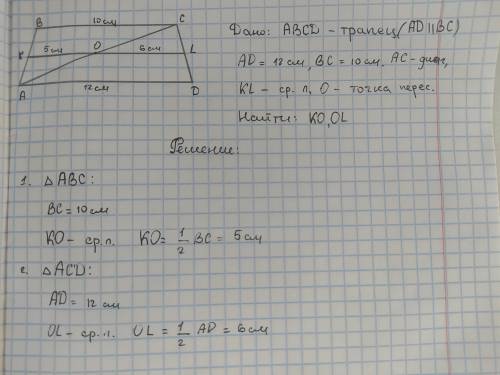 B 10 см C
K 5 см O 6 см L
A 12 см D
Дано: ABCD - трапец (AD || BC)
AD = 12 см, BC = 10 см. AC - диаг,
KL - ср. л, O - точка перес.
Найти: KO, OL
Решение:
1. △ ABC:
BC = 10 см
KO - ср. л. KO = 1/2 BC = 5 см
2. △ ACD:
AD = 12 см
OL - ср. л. OL = 1/2 AD = 6 см